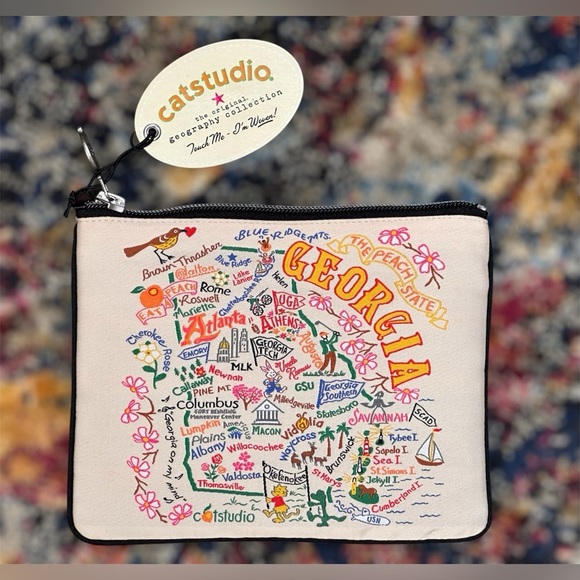 catstudio
the original
geography collection
Touch Me - I'm Woven!
BLUE RIDGE MTS.
THE PEACH STATE!
GEORGIA
Brown Thrasher
Dalton
Blue Ridge
Helen
Lake Lanier
EAT A PEACH
Rome
Roswell
Marietta
Chattahoochee R.
UGA
ATHENS
Atlanta
Augusta
Cherokee Rose
EMORY
GEORGIA TECH
MLK
Uncle Remus
Callaway
Newnan
PINE MT.
GSU
Georgia Southern
Columbus
FORT BENNING
Maneuver Center
Milledgeville
Statesboro
SAVANNAH
SCAD
Lumpkin
Americus
MACON
Vidalia
Plains
Albany
Willacoochee
Waycross
Brunswick
Tybee I.
Sapelo I.
Sea I.
St Simons I.
Jekyll I.
Cumberland I.
Georgia on my mind
Valdosta
Thomasville
Okefenokee
St. Marys
catstudio
USH